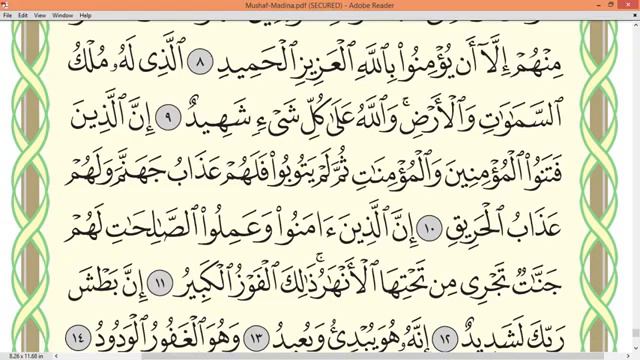 Mushaf-Madina.pdf (SECURED) - Adobe Reader
File Edit View Window Help
مِنْهُمْ إِلَّآ أَن يُؤْمِنُوا۟ بِٱللَّهِ ٱلْعَزِيزِ ٱلْحَمِيدِ ٨ ٱلَّذِى لَهُۥ مُلْكُ
ٱلسَّمَٰوَٰتِ وَٱلْأَرْضِ ۚ وَٱللَّهُ عَلَىٰ كُلِّ شَىْءٍ شَهِيدٌ ٩ إِنَّ ٱلَّذِينَ
فَتَنُوا۟ ٱلْمُؤْمِنِينَ وَٱلْمُؤْمِنَٰتِ ثُمَّ لَمْ يَتُوبُوا۟ فَلَهُمْ عَذَابُ جَهَنَّمَ وَلَهُمْ
عَذَابُ ٱلْحَرِيقِ ١٠ إِنَّ ٱلَّذِينَ ءَامَنُوا۟ وَعَمِلُوا۟ ٱلصَّٰلِحَٰتِ لَهُمْ
جَنَّٰتٌ تَجْرِى مِن تَحْتِهَا ٱلْأَنْهَٰرُ ۚ ذَٰلِكَ ٱلْفَوْزُ ٱلْكَبِيرُ ١١ إِنَّ بَطْشَ
رَبِّكَ لَشَدِيدٌ ١٢ إِنَّهُۥ هُوَ يُبْدِئُ وَيُعِيدُ ١٣ وَهُوَ ٱلْغَفُورُ ٱلْوَدُودُ ١٤
8.26 x 11.68 in